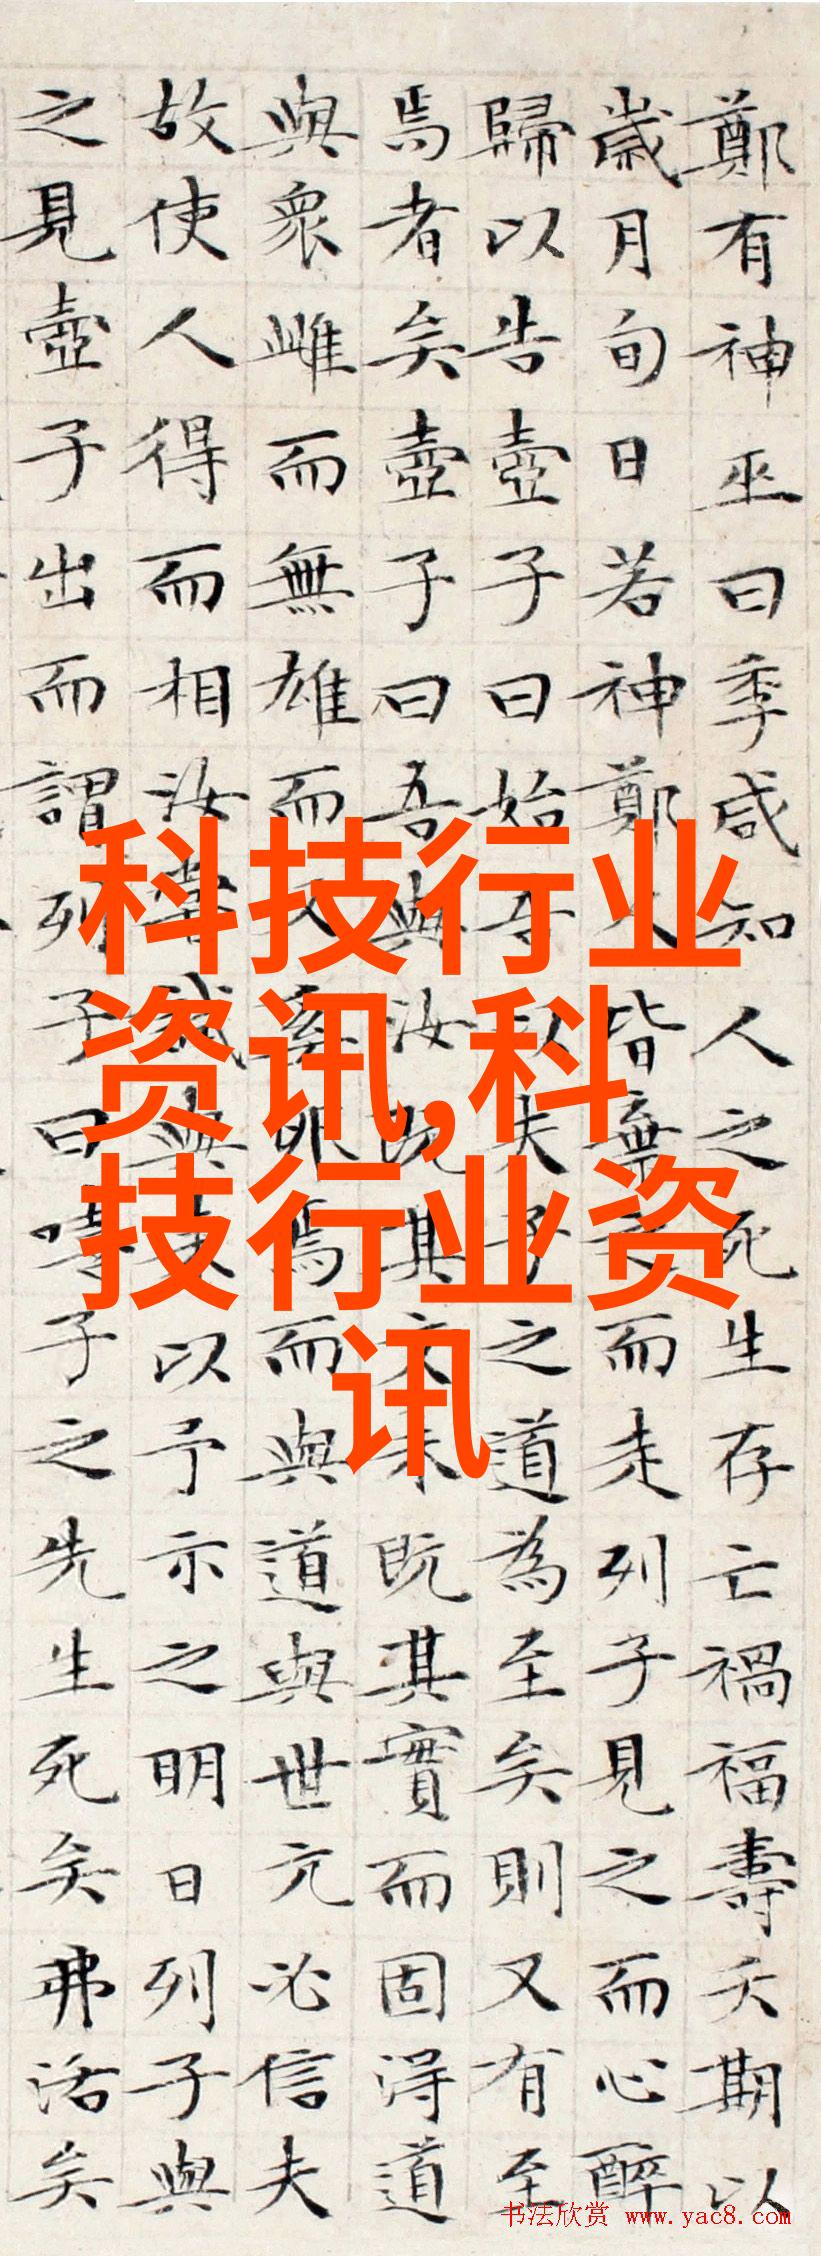 鄭有神巫曰季咸知人之死生存亡禍福壽夭期以
歲月旬日若神鄭人皆棄之而走列子見之而心醉
歸以告壺子曰始吾以夫子之道為至矣則又有至
焉者矣壺子曰吾與汝既其文未既其實而固得道
與眾雌而無雄而又奚卵焉而與道與世亢必信夫
故使人得而相汝嘗試與來以予示之明日列子與
之見壺子出而謂列子曰嘻子之先生死矣弗活矣
科技行业
资讯,科
技行业资
讯
书法欣赏 www.yac8.com